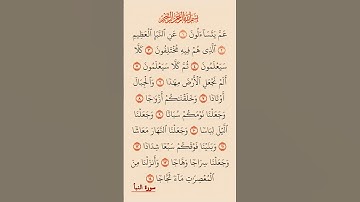 بِسْمِ اللَّهِ الرَّحْمَٰنِ الرَّحِيمِ
عَمَّ يَتَسَآءَلُونَ ١ عَنِ ٱلنَّبَإِ ٱلْعَظِيمِ
٢ ٱلَّذِى هُمْ فِيهِ مُخْتَلِفُونَ ٣ كَلَّا
سَيَعْلَمُونَ ٤ ثُمَّ كَلَّا سَيَعْلَمُونَ ٥
أَلَمْ نَجْعَلِ ٱلْأَرْضَ مِهَٰدًا ٦ وَٱلْجِبَالَ
أَوْتَادًا ٧ وَخَلَقْنَٰكُمْ أَزْوَٰجًا ٨
وَجَعَلْنَا نَوْمَكُمْ سُبَاتًا ٩ وَجَعَلْنَا
ٱلَّيْلَ لِبَاسًا ١٠ وَجَعَلْنَا ٱلنَّهَارَ مَعَاشًا
١١ وَبَنَيْنَا فَوْقَكُمْ سَبْعًا شِدَادًا ١٢
وَجَعَلْنَا سِرَاجًا وَهَّاجًا ١٣ وَأَنزَلْنَا مِنَ
ٱلْمُعْصِرَٰتِ مَآءً ثَجَّاجًا ١٤
سورة النبأ